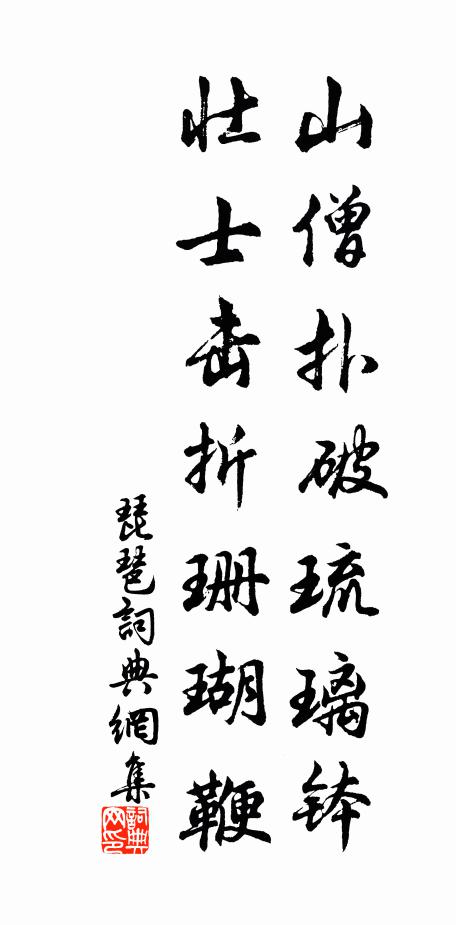 山僧扑破琉璃钵
壮士击折珊瑚鞭
琵琶詞典網集
詞典
网印